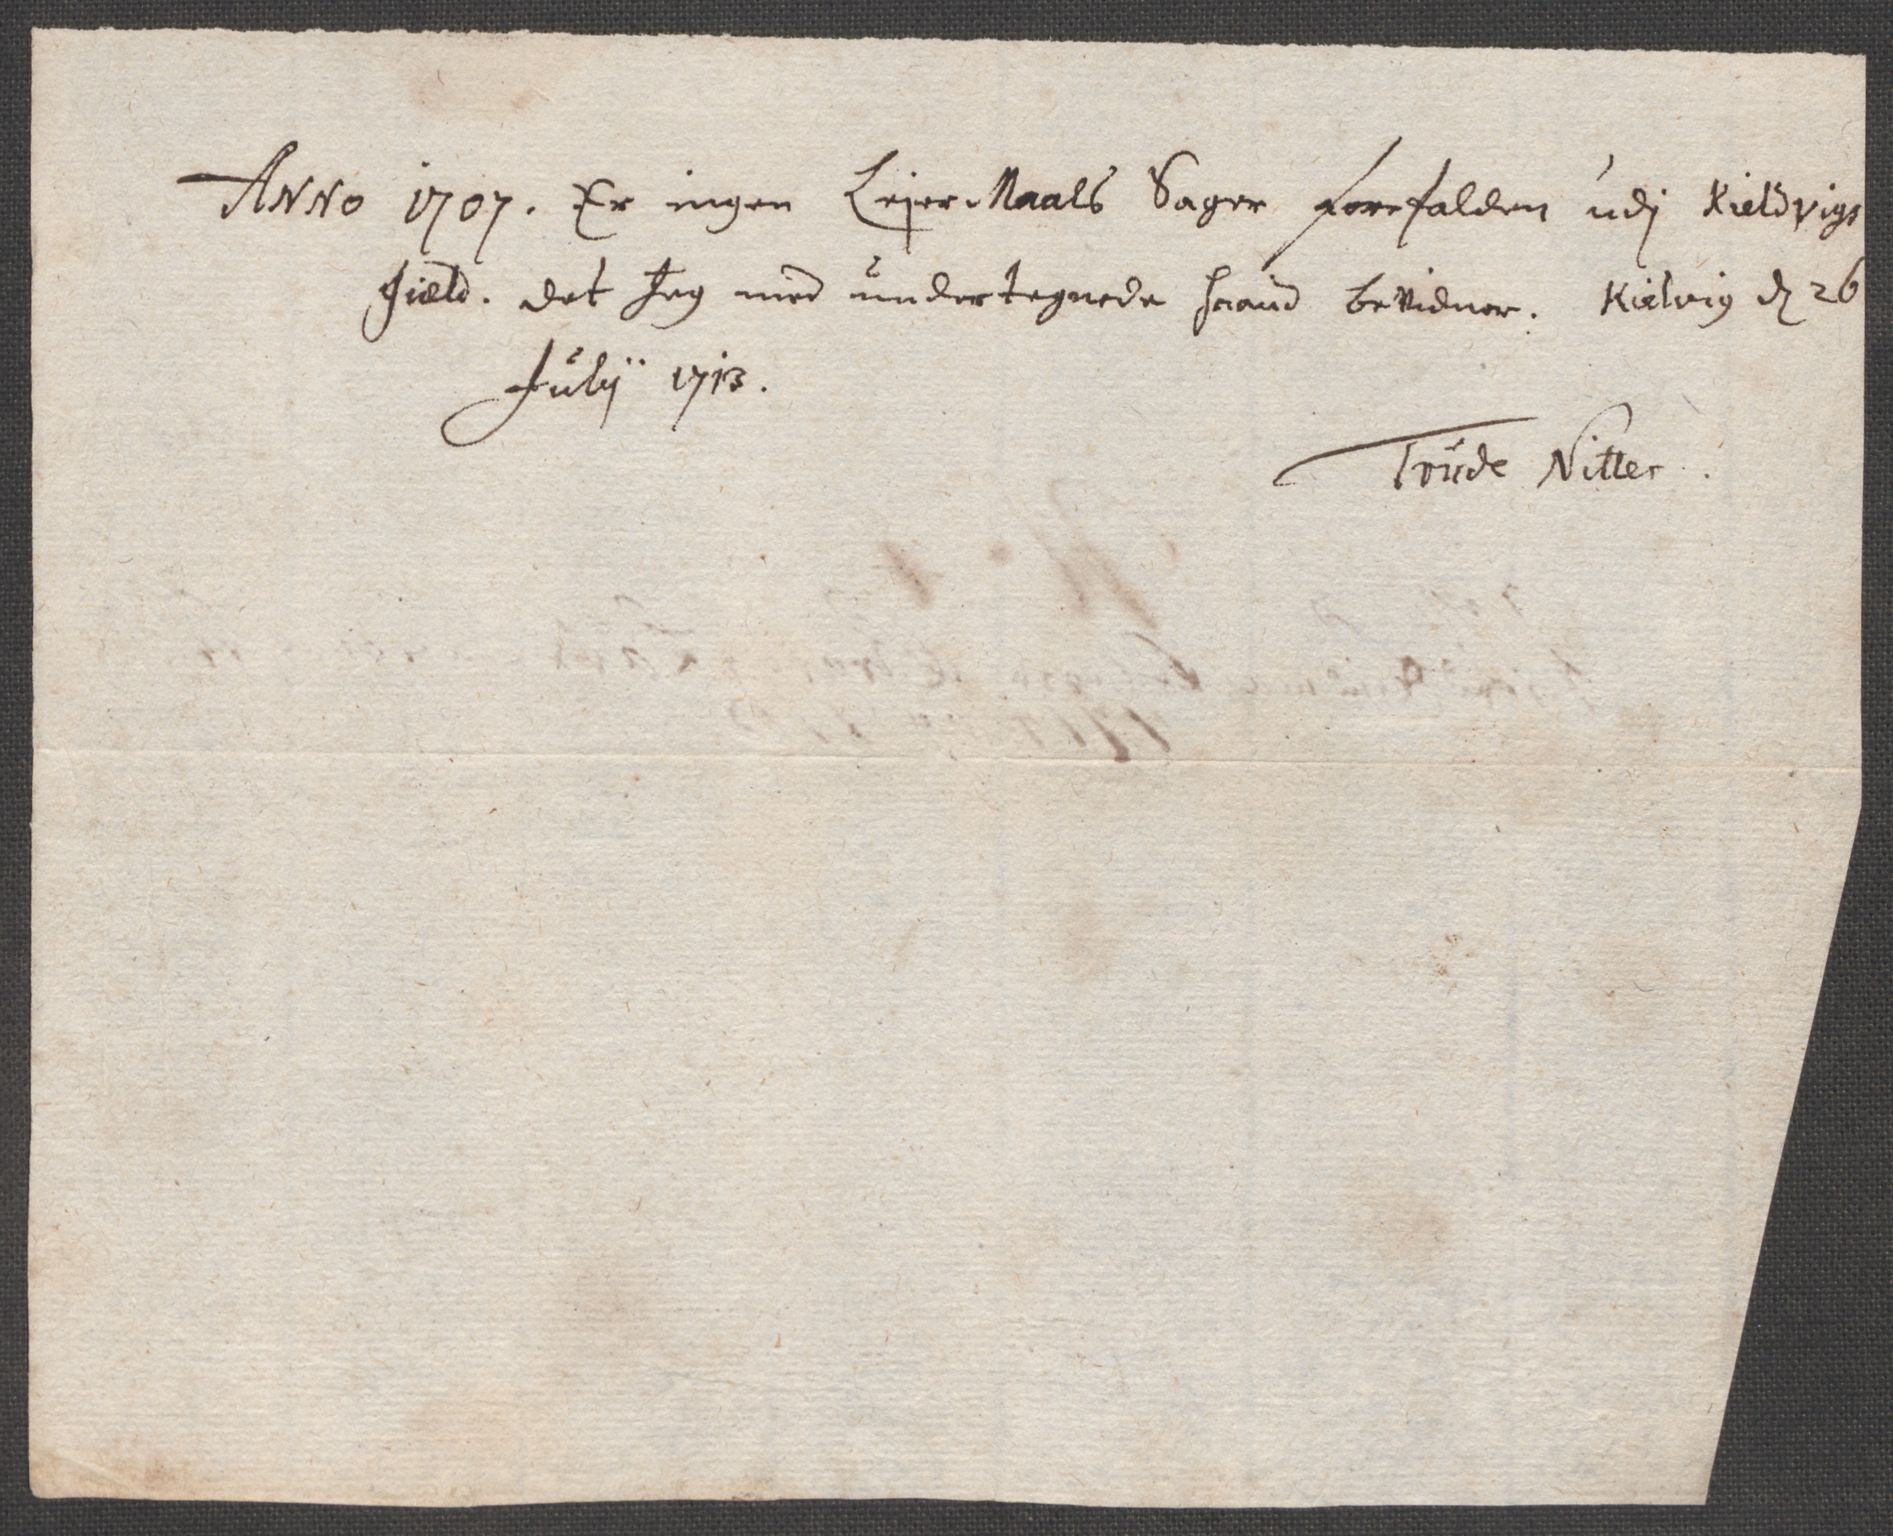 Anno 1707. Er ingen Leyer-Maals Sager forefalden udj Kieldvigs
Gield. det Jeg med undertegnede haand bevidner. Kielvig d 26
Julij 1713.
Trude Nitter.